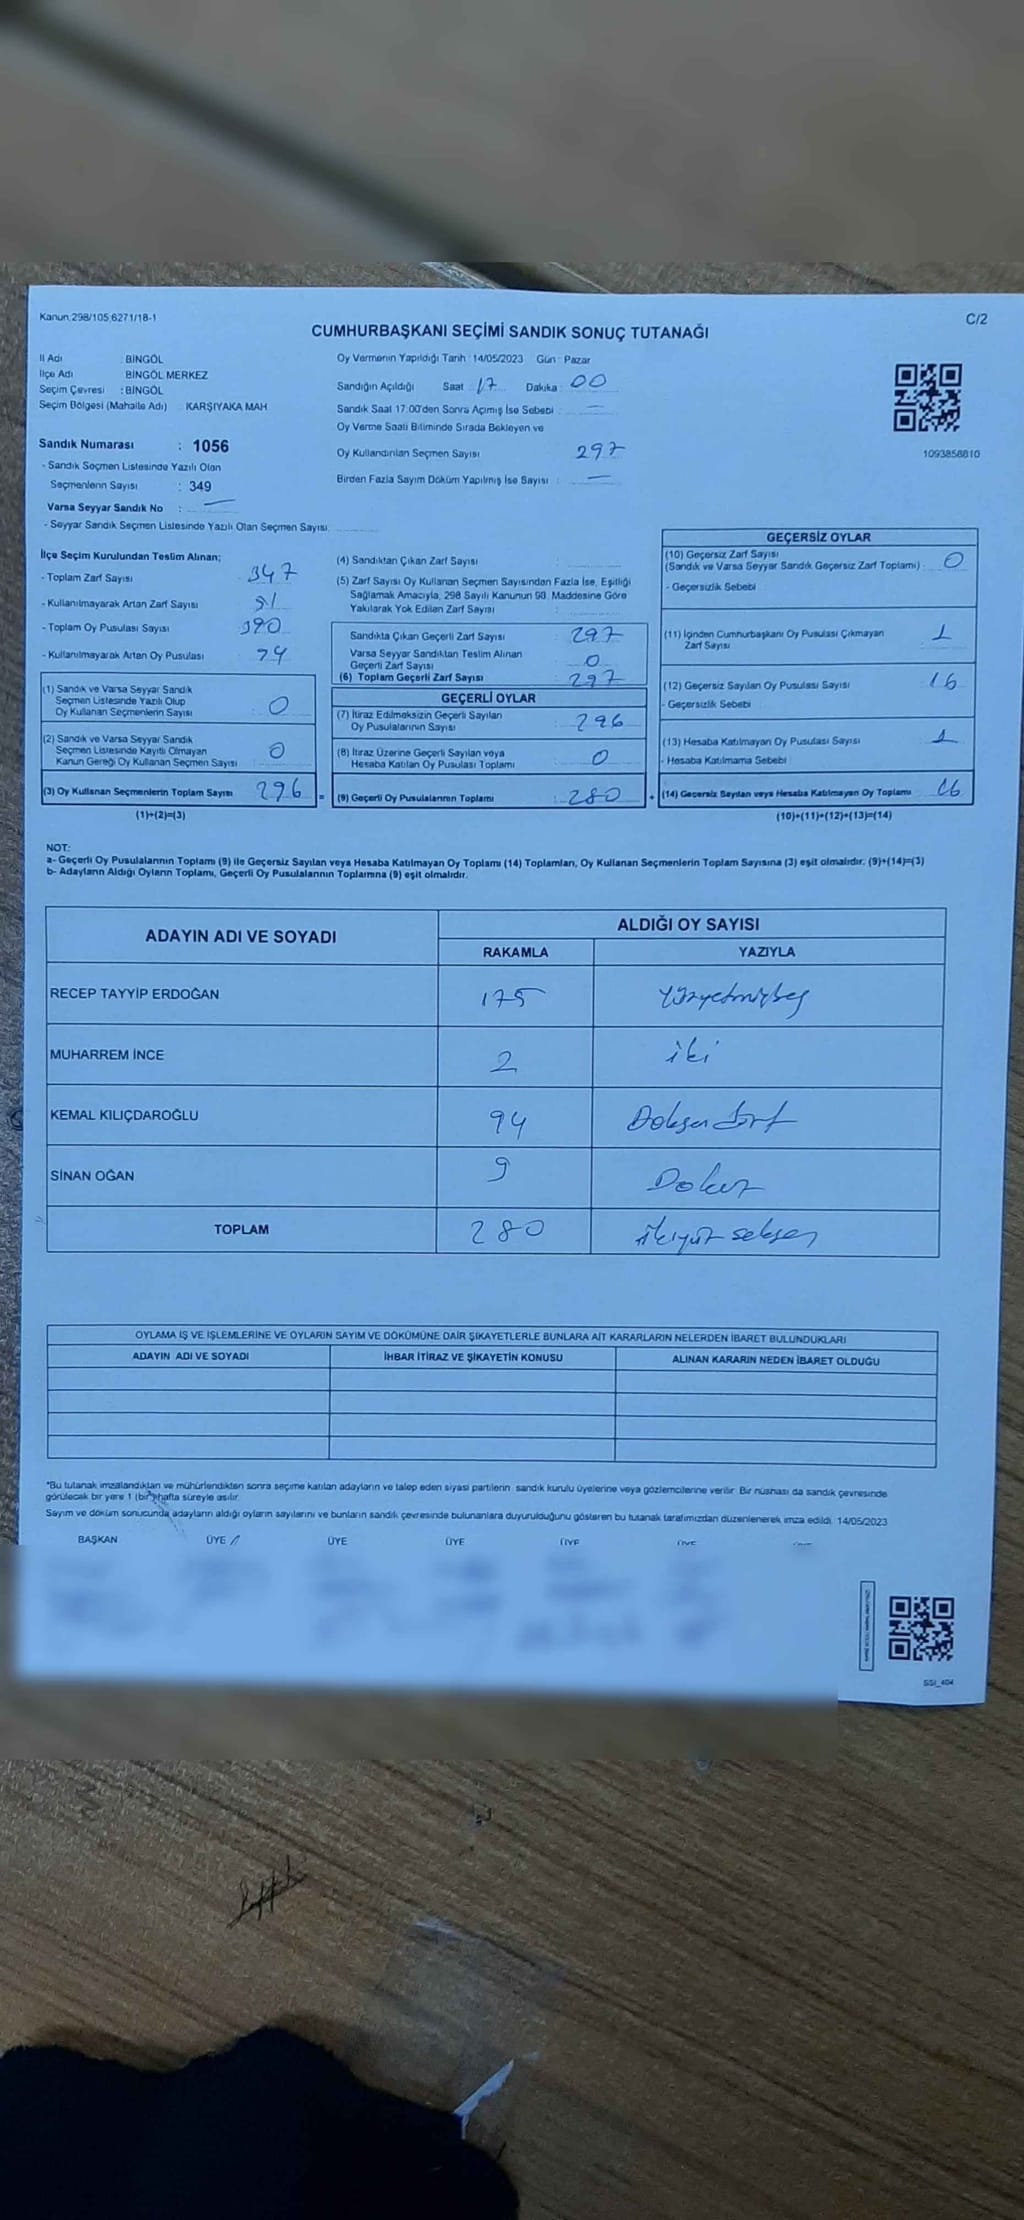 Kanun:298/105;6271/18-1
C/2
CUMHURBAŞKANI SEÇİMİ SANDIK SONUÇ TUTANAĞI
İl Adı : BİNGÖL
İlçe Adı : BİNGÖL MERKEZ
Seçim Çevresi : BİNGÖL
Seçim Bölgesi (Mahalle Adı) KARŞIYAKA MAH
Sandık Numarası : 1056
- Sandık Seçmen Listesinde Yazılı Olan
Seçmenlerin Sayısı : 349
Varsa Seyyar Sandık No : —
- Seyyar Sandık Seçmen Listesinde Yazılı Olan Seçmen Sayısı:
Oy Vermenin Yapıldığı Tarih : 14/05/2023 Gün : Pazar
Sandığın Açıldığı Saat : 17 Dakika : 00
Sandık Saat 17:00'den Sonra Açımış İse Sebebi : —
Oy Verme Saati Bitiminde Sırada Bekleyen ve
Oy Kullandırılan Seçmen Sayısı 297
Birden Fazla Sayım Döküm Yapılmış İse Sayısı : —
1093858810
İlçe Seçim Kurulundan Teslim Alınan;
- Toplam Zarf Sayısı 347
- Kullanılmayarak Artan Zarf Sayısı 51
- Toplam Oy Pusulası Sayısı 390
- Kullanılmayarak Artan Oy Pusulası 94
(1) Sandık ve Varsa Seyyar Sandık
Seçmen Listesinde Yazılı Olup
Oy Kullanan Seçmenlerin Sayısı : 0
(2) Sandık ve Varsa Seyyar Sandık
Seçmen Listesinde Kayıtlı Olmayan
Kanun Gereği Oy Kullanan Seçmen Sayısı : 0
(3) Oy Kullanan Seçmenlerin Toplam Sayısı 296 =
(1)+(2)=(3)
(4) Sandıktan Çıkan Zarf Sayısı :
(5) Zarf Sayısı Oy Kullanan Seçmen Sayısından Fazla İse, Eşitliği
Sağlamak Amacıyla, 298 Sayılı Kanunun 98. Maddesine Göre
Yakılarak Yok Edilen Zarf Sayısı :
Sandıkta Çıkan Geçerli Zarf Sayısı : 297
Varsa Seyyar Sandıktan Teslim Alınan
Geçerli Zarf Sayısı : 0
(6) Toplam Geçerli Zarf Sayısı : 297
GEÇERLİ OYLAR
(7) İtiraz Edilmeksizin Geçerli Sayılan
Oy Pusulalarının Sayısı : 296
(8) İtiraz Üzerine Geçerli Sayılan veya
Hesaba Katılan Oy Pusulası Toplamı : 0
(9) Geçerli Oy Pusulalarının Toplamı : 280 +
GEÇERSİZ OYLAR
(10) Geçersiz Zarf Sayısı
(Sandık ve Varsa Seyyar Sandık Geçersiz Zarf Toplamı) : 0
- Geçersizlik Sebebi
(11) İçinden Cumhurbaşkanı Oy Pusulası Çıkmayan
Zarf Sayısı 1
(12) Geçersiz Sayılan Oy Pusulası Sayısı 16
- Geçersizlik Sebebi
(13) Hesaba Katılmayan Oy Pusulası Sayısı 1
- Hesaba Katılmama Sebebi
(14) Geçersiz Sayılan veya Hesaba Katılmayan Oy Toplamı 16
(10)+(11)+(12)+(13)=(14)
NOT:
a- Geçerli Oy Pusulalarının Toplamı (9) ile Geçersiz Sayılan veya Hesaba Katılmayan Oy Toplamı (14) Toplamları, Oy Kullanan Seçmenlerin Toplam Sayısına (3) eşit olmalıdır. (9)+(14)=(3)
b- Adayların Aldığı Oyların Toplamı, Geçerli Oy Pusulalarının Toplamına (9) eşit olmalıdır.
ADAYIN ADI VE SOYADI
ALDIĞI OY SAYISI
RAKAMLA YAZIYLA
RECEP TAYYİP ERDOĞAN 175 Yüzyetmişbeş
MUHARREM İNCE 2 iki
KEMAL KILIÇDAROĞLU 94 Doksan dört
SİNAN OĞAN 9 Dokuz
TOPLAM 280 ikiyüz seksen
OYLAMA İŞ VE İŞLEMLERİNE VE OYLARIN SAYIM VE DÖKÜMÜNE DAİR ŞİKAYETLERLE BUNLARA AİT KARARLARIN NELERDEN İBARET BULUNDUKLARI
ADAYIN ADI VE SOYADI İHBAR İTİRAZ VE ŞİKAYETİN KONUSU ALINAN KARARIN NEDEN İBARET OLDUĞU
*Bu tutanak imzalandıktan ve mühürlendikten sonra seçime katılan adayların ve talep eden siyasi partilerin sandık kurulu üyelerine veya gözlemcilerine verilir. Bir nüshası da sandık çevresinde
görülecek bir yere 1 (bir) hafta süreyle asılır.
Sayım ve döküm sonucunda adayların aldığı oyların sayılarını ve bunların sandık çevresinde bulunanlara duyurulduğunu gösteren bu tutanak tarafımızdan düzenlenerek imza edildi. 14/05/2023
BAŞKAN ÜYE ÜYE ÜYE ÜYE ÜYE
SSI_404